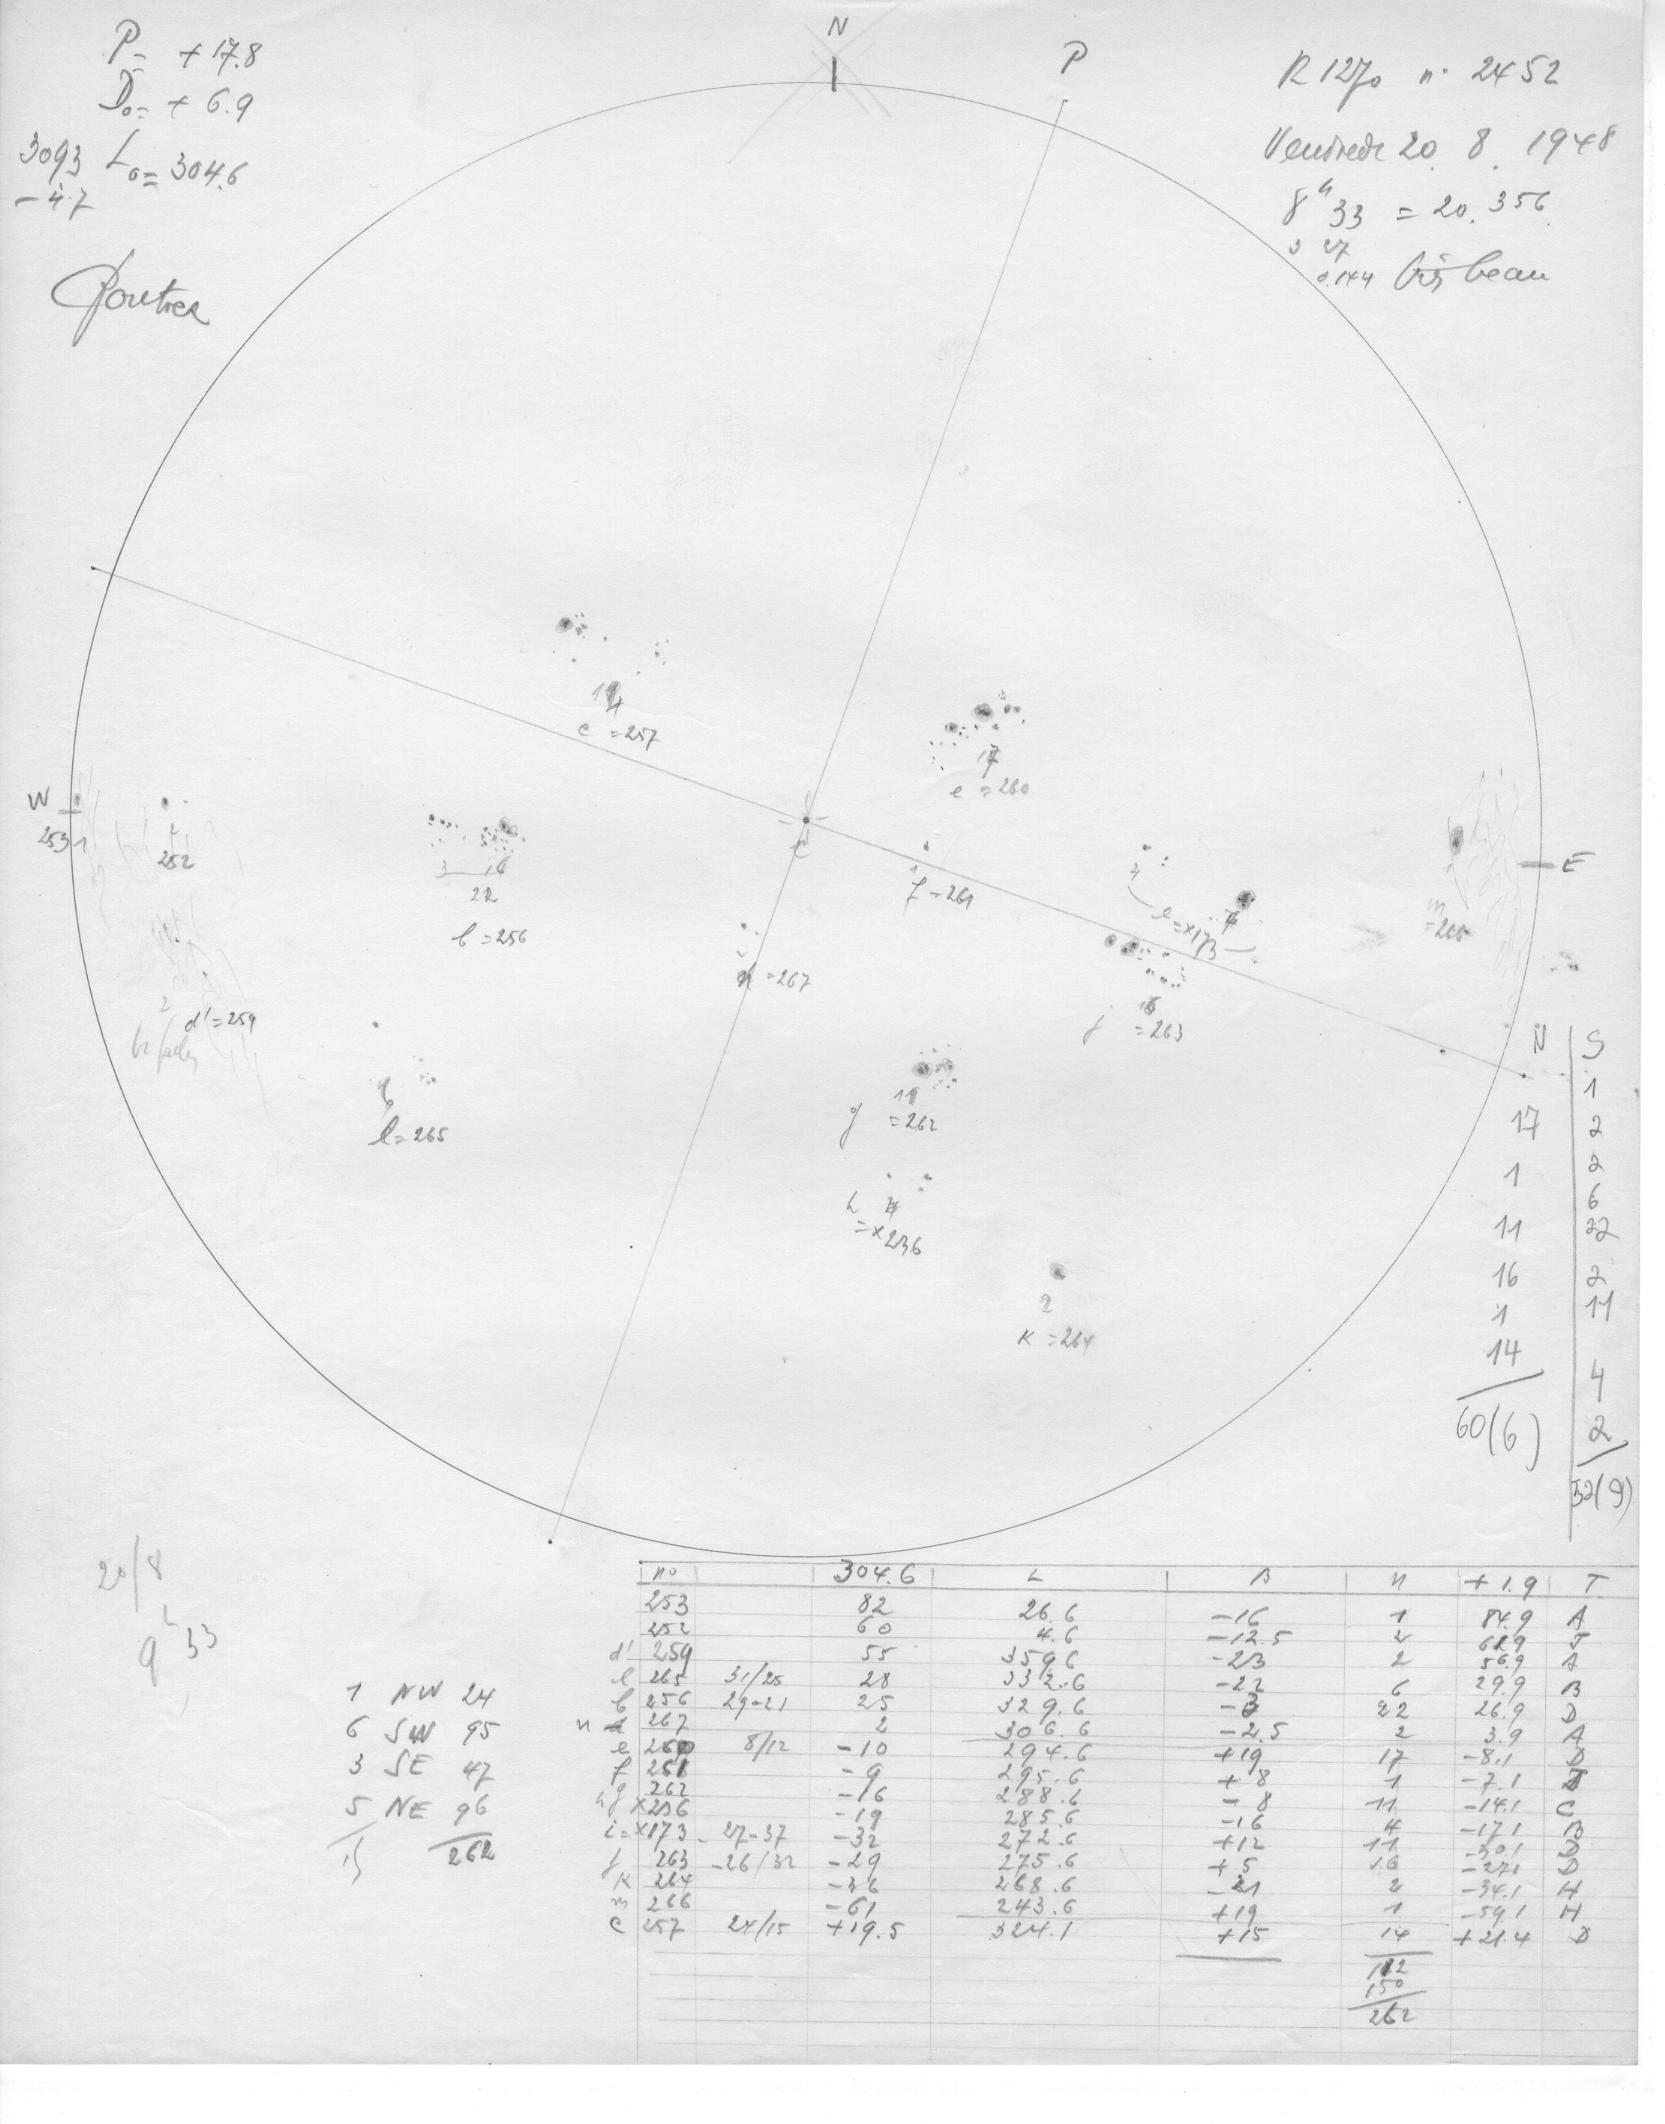 P= +17.8
D₀= +6.9
3093 L₀= 304.6
-4.7
N
P
n° 2452
20. 8. 1948
8ʰ33 = 20.356
3 27
0.144 très beau
W
253 1
2
252
14
c =257
17
e =260
3 16
22
b =256
c
1
f =261
4
e=x173
E
m
=266
=267
2
d'=259
16
j =263
6
l=265
11
g =262
h 4
=x236
2
k =264
N S
1
17 2
1 2
6
11 22
16 2
1 11
14
4
60(6) 2
52(9)
20/8
9ʰ33
1 NW 24
6 SW 95
3 SE 47
5 NE 96
15 262
no 304.6 L B n +1.9 T
253 82 26.6 -16 1 84.9 A
252 60 4.6 -12.5 2 61.9 J
d' 259 55 359.6 -23 2 56.9 A
l 265 31/25 28 332.6 -22 6 29.9 B
b 256 29-21 25 329.6 -3 22 26.9 D
n 267 2 306.6 -2.5 2 3.9 A
e 260 8/12 -10 294.6 +19 17 -8.1 D
f 261 -9 295.6 +8 1 -7.1 J
g 262 -16 288.6 -8 11 -14.1 C
h x236 -19 285.6 -16 4 -17.1 B
i=x173 -27-37 -32 272.6 +12 11 -30.1 D
j 263 -26/32 -29 275.6 +5 16 -27.1 D
k 264 -36 268.6 -21 2 -34.1 H
m 266 -61 243.6 +19 1 -59.1 H
c 257 24/15 +19.5 324.1 +15 14 +21.4 D
112
150
262